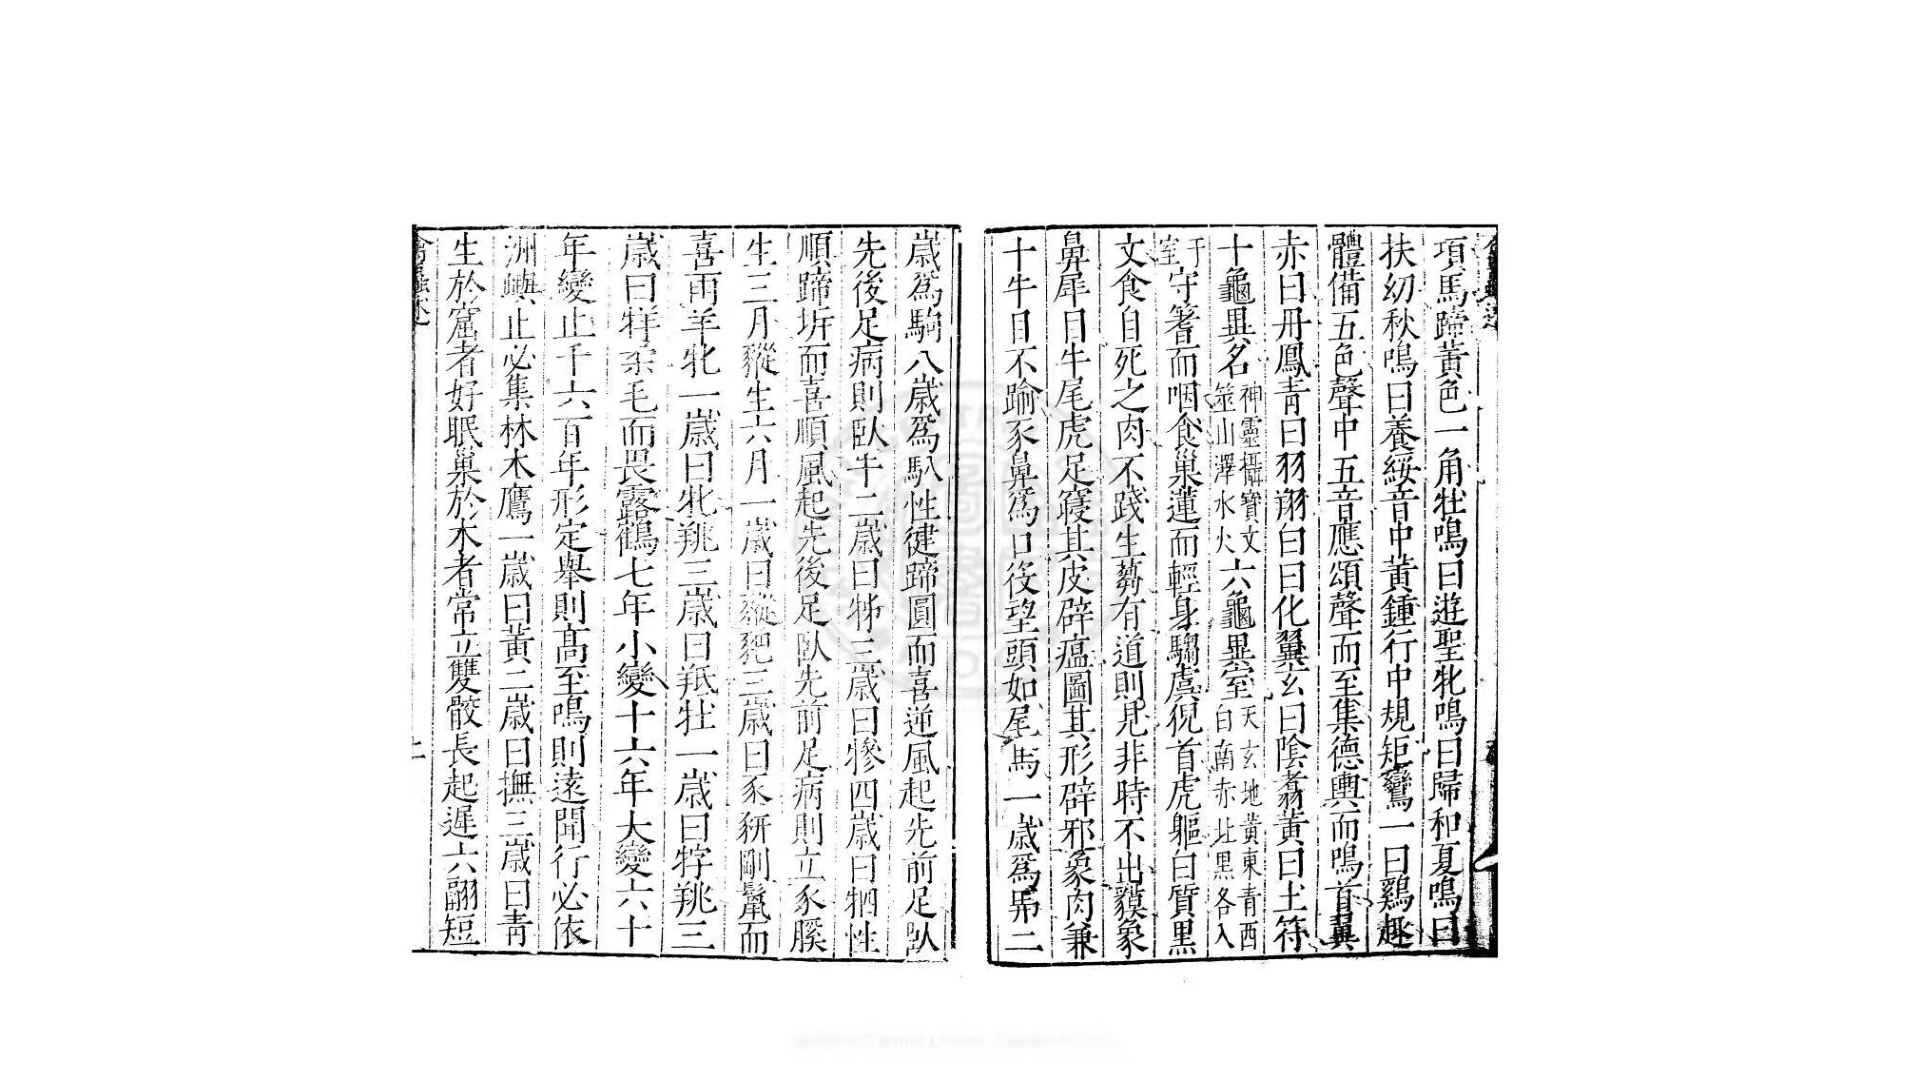 項馬蹄黃色一角牡鳴曰遊聖牝鳴曰歸和夏鳴曰
扶幼秋鳴曰養綏音中黃鍾行中規矩鸞一曰鷄趣
體備五色聲中五音應頌聲而至集德輿而鳴首翼
赤曰丹鳳青曰羽翔白曰化翼玄曰陰翥黃曰土符
十龜異名神靈攝寶文筮山澤水火六龜異室天玄地黃東青西白南赤北黑各入
于室守箸而咽食巢蓮而輕身騶虞猊首虎軀白質黑
文食自死之肉不踐生蒭有道則見非時不出貘象
鼻犀目牛尾虎足寢其皮辟瘟圖其形辟邪象肉兼
十牛目不踰豕鼻爲口役望頭如尾馬一歲爲馬二
歲爲駒八歲爲馭性健蹄圓而喜逆風起先前足臥
先後足病則臥牛二歲曰㸬三歲曰犙四歲曰牭性
順蹄坼而喜順風起先後足臥先前足病則立豕豯
生三月豵生六月一歲曰豵豝三歲曰豕豜剛鬣而
喜雨羊牝一歲曰牝羜三歲曰羝牡一歲曰牸羜三
歲曰牂柔毛而畏露鶴七年小變十六年大變六十
年變止千六百年形定舉則高至鳴則遠聞行必依
洲嶼止必集林木鷹一歲曰黃二歲曰撫三歲曰青
生於窟者好眠巢於木者常立雙骹長起遲六翮短
禽蟲述